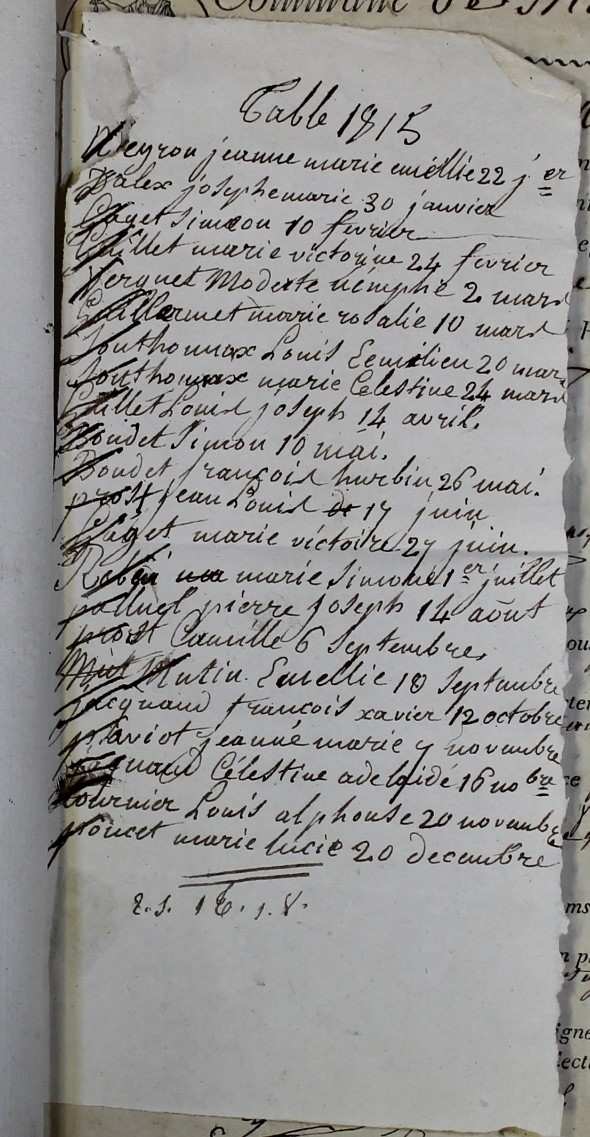 Table 1815
jeanne marie emellie 22 j.er
Dalex josephe marie 30 janvier
Paget Simeon 10 fevrier
Guillet marie victorine 24 fevrier
Vergnet Modeste nemphe 2 mars
Guillermet marie rosalie 10 mars
Southonnax Louis Eemilien 20 mar
Southonnax marie Celestine 24 mars
Guillet Louis joseph 14 avril.
Boudet Simon 10 mai.
Boudet françois hurbin 26 mai.
prost jean Louis 17 juin
Paget marie victoire 27 juin.
marie simone 1er juillet
pierre joseph 14 août
prost Camille 6 Septembre
Mutin Emellie 18 Septembre
jacquand francois xavier 12 octobre
jeanne marie 7 novembre
Célestine adelaide 16 nobre
tournier Louis alphonse 20 novembre
poncet marie lucie 20 decembre